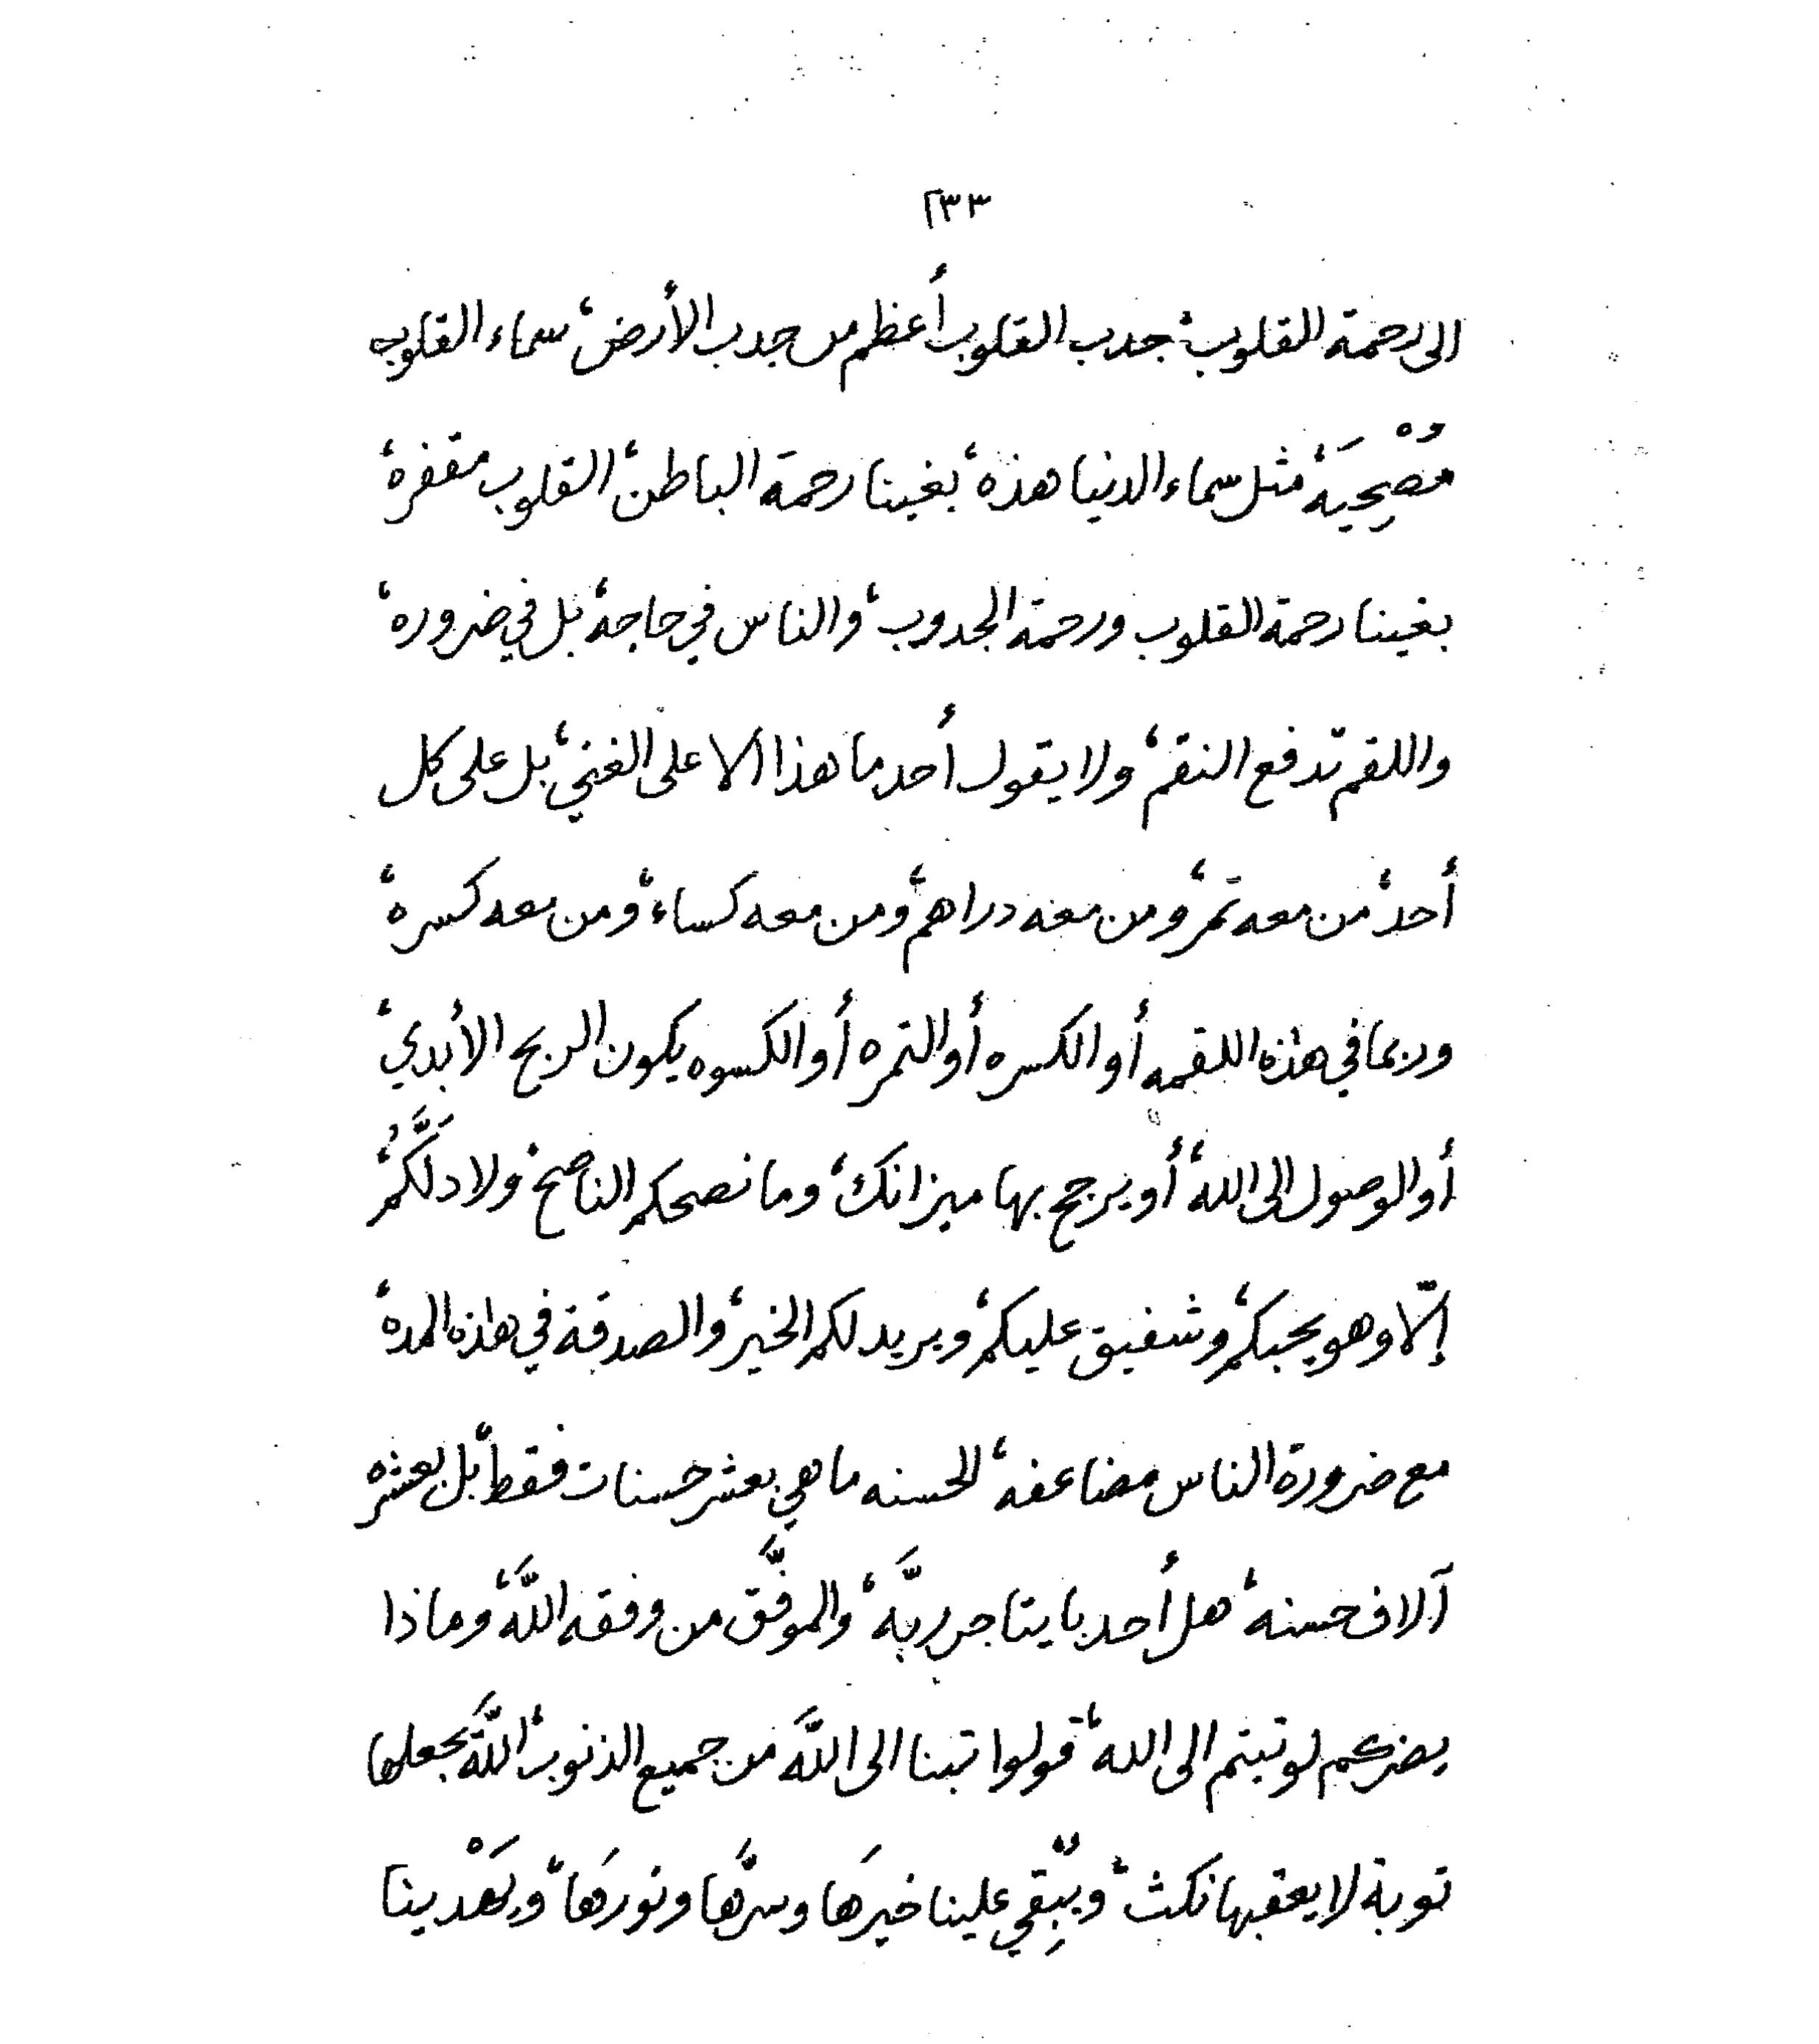 ٢٣٣
الى رحمة القلوب، جدب القلوب أعظم من جدب الأرض، سماء القلوب
مُصْحِيَة، مثل سماء الدنيا هذه، بغينا رحمة الباطن، القلوب مقفره،
بغينا رحمة القلوب ورحمة الجدوب، والناس في حاجة، بل في ضروره،
واللقم تدفع النقم، ولا يقول أحد ما هذا الا على الغني، بل على كل
أحد، من معه تمر، ومن معه دراهم، ومن معه كساء، ومن معه كسره،
وربما في هذه اللقمه أو الكسره أو التمره أو الكسوه يكون الربح الأبدي،
أو الوصول الى الله، أو يرجح بها ميزانك، وما نصحكم الناصح، ولا دلَّكُم،
إلّا وهو يحبكم، وشفيق عليكم، ويريد لكم الخير، والصدقة في هذه المده،
مع ضرورة الناس مضاعفه، للحسنه ما هي بعشر حسنات فقط، بل بعشره
آلاف حسنه، هل أحد با يتاجر ربَّه، والموفَّق من وفقه اللَّه، وماذا
يضركم لو تبتم الى الله، قولوا تبنا الى اللَّه من جميع الذنوب، اللَّه يجعلها
توبة لا يعقبها نكث، ويُبْقِي علينا خيرَها وسرَّها ونورَها، ويَهْدينا